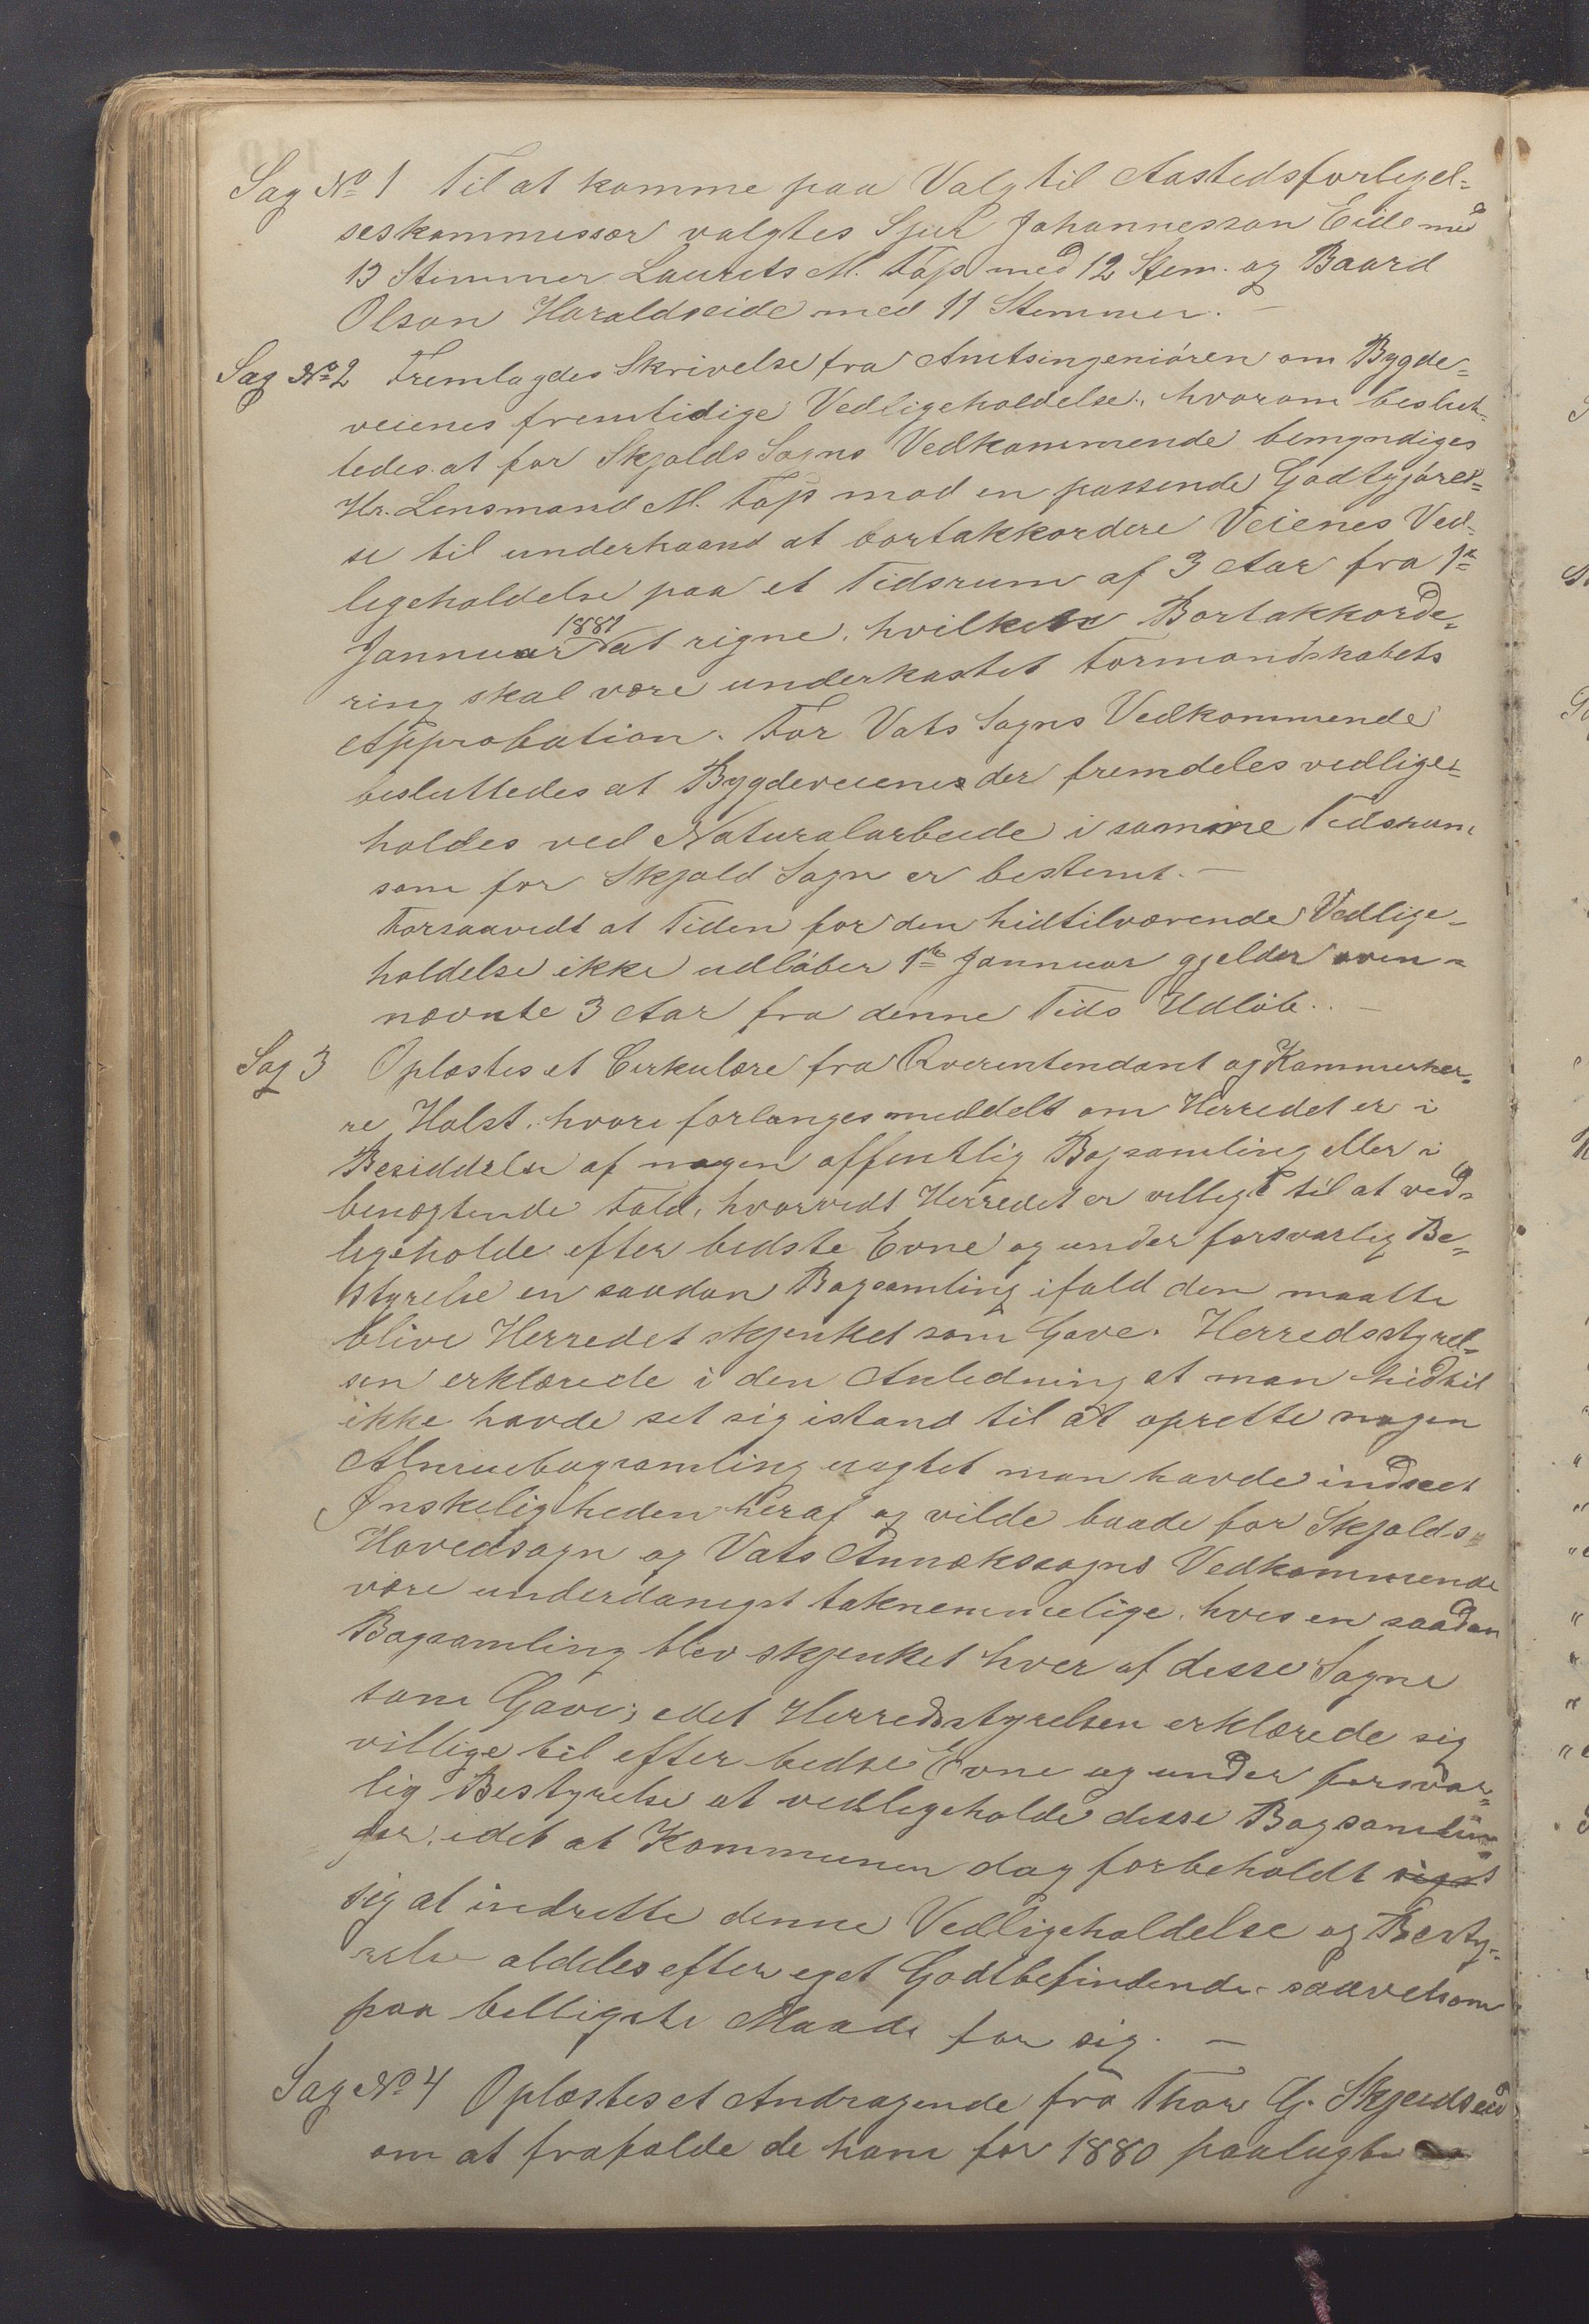 Sag No 1 Til at komme paa Valg til Aastedsforligel-
seskommissær valgtes Sjur Johannesson Eide med
13 Stemmer Laurits M. Føjs med 12 Stem. og Baard
Olson Haraldseide med 11 Stemmer. -
Sag No 2 Fremlagdes Skrivelse fra Amtsingeniören om Bygde-
veienes fremtidige Vedligeholdelse, hvorom beslut-
tedes at for Skjolds Sogns Vedkommende bemyndiges
Hr. Lensmand M. Føjs mod en passende Godtgjörel-
se til underhaand at bortakkordere Veienes Ved-
ligeholdelse paa et Tidsrum af 3 Aar fra 1ste
Jannuar 1881 at rigne, hvilken Bortakkorde-
ring skal være underkastet Formandskabets
Approbation. For Vats Sogns Vedkommende
besluttedes at Bygdeveiene der fremdeles vedlige-
holdes ved Naturalarbeide i samme Tidsrum
som for Skjold Sogn er bestemt. -
Forsaavidt at Tiden for den hidtilværende Vedlige-
holdelse ikke udlöber 1ste Jannuar gjelder oven-
nævnte 3 Aar fra denne Tids Udlöb. -
Sag 3 Oplæstes et Cirkulære fra Overintendant og Kammerher-
re Holst, hvori forlanges meddelt om Herredet er i
Besiddelse af nogen offentlig Bogsamling eller i
benægtende Fald, hvorvidt Herredet er villigt til at ved-
ligeholde efter bedste Evne og under forsvarlig Be-
styrelse en saadan Bogsamling ifald den maatte
blive Herredet skjenket som Gave. Herredsstyrel-
sen erklærede i den Anledning at man hidtil
ikke havde set sig istand til at oprette nogen
Almuebogsamling uagtet man havde indseet
Ønskeligheden heraf og vilde baade for Skjolds-
Hovedsogn og Vats Annekssogns Vedkommende
være underdanigst taknemmelige, hvis en saadan
Bogsamling blev skjenket hver af disse Sogne
som Gave, idet Herredsstyrelsen erklærede sig
villige til efter bedse Evne og under forsvar-
lig Bestyrelse at vedligeholde disse Bogsamlin-
ger, idet at Kommunen dog forbeholdt
sig at indrette denne Vedligeholdelse og Besty-
relse aldeles efter eget Godtbefindende saavelsom
paa billigste Maade for sig. -
Sag No 4 Oplæstes et Andragende fra Thor G. Skjeldseid
om at frafalde de ham for 1880 paalagte